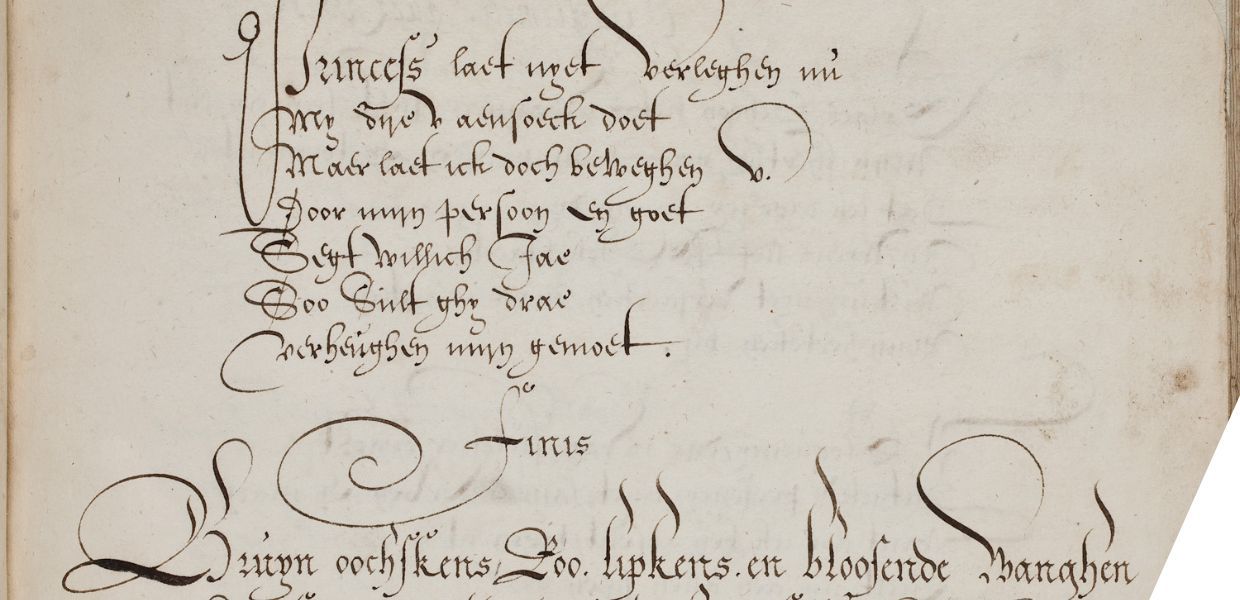 Princess laet nyet verleghen nu
My dye v aensoeck doet
Maer laet ick doch beweghen v.
Door mijn persoon en goet
Segt willich Jae
Soo Sult ghy drae
verheughen mijn gemoet.
Finis
Bruyn oochskens, Roo. lipkens. en bloosende Wanghen